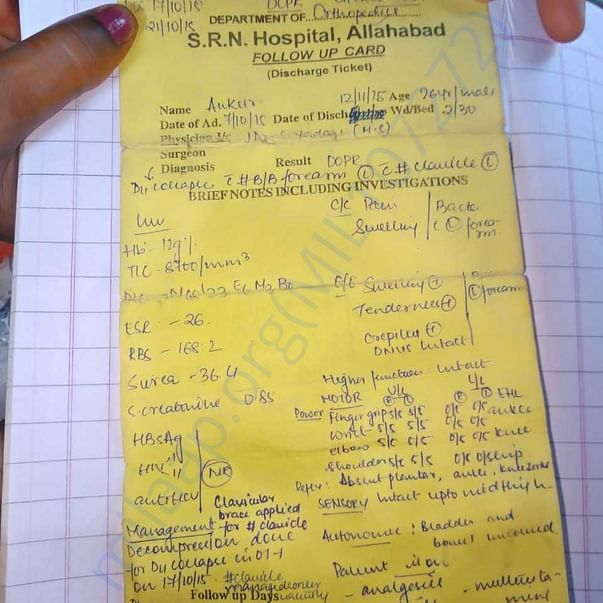 17/10/15 DOPR
21/10/15
DEPARTMENT OF Orthopedics
S.R.N. Hospital, Allahabad
FOLLOW UP CARD
(Discharge Ticket)
Name Ankur 12/11/15 Age 26yr/male
Date of Ad. 7/10/15 Date of Disch Wd/Bed 2/30
Physician (M.S)
Surgeon Result DOPR
Diagnosis
D11 collapse c̄ # B/B forearm (L) c̄ # clavicle (L)
BRIEF NOTES INCLUDING INVESTIGATIONS
Inv C/C Pain Back
Swelling c̄ (L) forearm.
Hb. 12g%
TLC - 8700/mm3
E6 M2 B0 O/E Swelling (+) (L) forearm
Tenderness (+)
ESR - 26. Crepitus (+)
DNVS Intact
RBS - 168.2
Surea - 36.4 Higher function : Intact
MOTOR U/L L/L
S. creatinine 0.85 Power Finger grip 5/5 5/5 0/5 0/5 EHL
Wrist - 5/5 5/5 0/5 0/5 ankle
HBsAg elbow 5/5 5/5 0/5 0/5 knee
HIV Shoulder 5/5 5/5 0/5 0/5 hip
antiHCV (NR) Absent plantar, ankle, knee
Clavicular SENSORY Intact upto midthigh
brace applied
Management for # clavicle
Decompression done Autonomic : Bladder and
for D11 collapse in OT bowel involved.
on 17/10/15. # clavicle Patient is on
managed
Follow up Days - analgesic
milaap.org